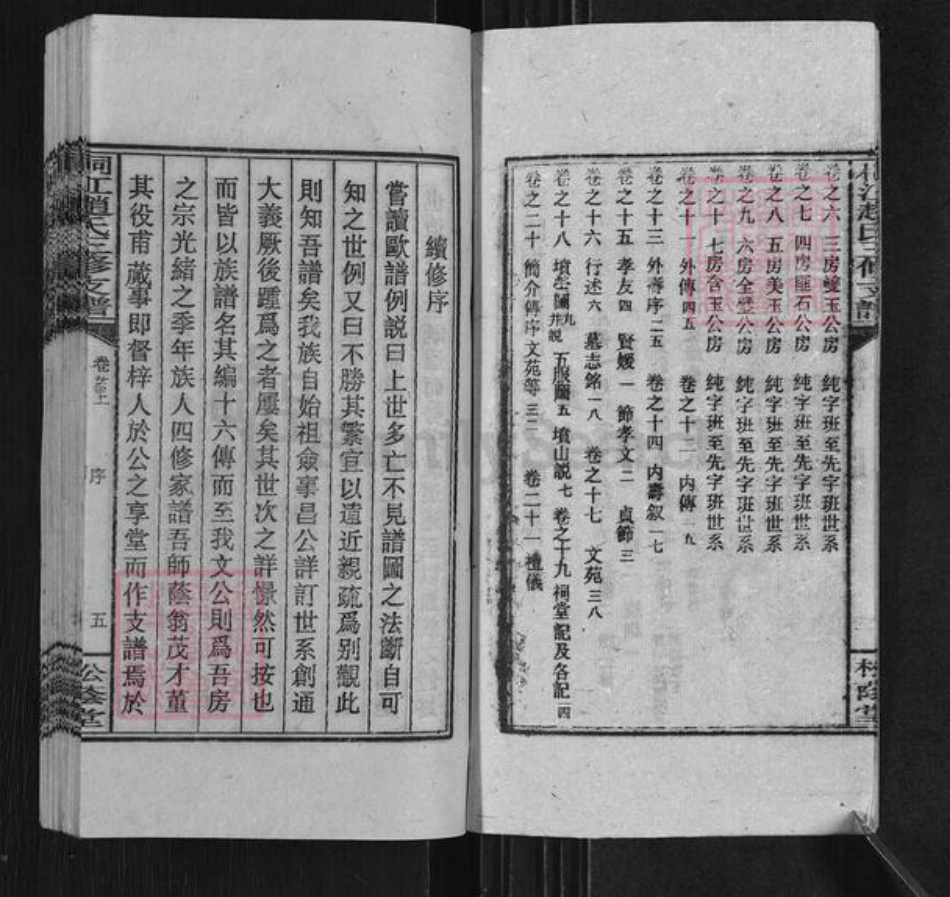 卷之六 三房雙玉公房 純字班至先字班世系
卷之七 四房 石公房 純字班至先字班世系
卷之八 五房美玉公房 純字班至先字班世系
卷之九 六房全璧公房 純字班至先字班世系
卷之十 七房含玉公房 純字班至先字班世系
卷之十一 外傳四五 卷之十二 內傳一五
卷之十三 外壽序二五 卷之十四 內壽叙一七
卷之十五 孝友四 賢媛一 節孝文二 貞節三
卷之十六 行述六 墓志銘一八 卷之十七 文苑三八
卷之十八 墳塋圖九并說 五服圖五 墳山說七 卷之十九 祠堂記及各記一四
卷之二十 簡介傳序文苑等三二 卷二十一 禮儀
松蔭堂
續修序
嘗讀歐譜例說曰上世多亡不見譜圖之法斷自可
知之世例又曰不勝其繁宜以遠近親疏爲別觀此
則知吾譜矣我族自始祖僉事昌公詳訂世系創通
大義厥後踵爲之者屢矣其世次之詳憬然可按也
而皆以族譜名其編十六傳而至我文公則爲吾房
之宗光緒之季年族人四修家譜吾師蔭翁茂才董
其役甫蕆事即督梓人於公之享堂而作支譜焉於
趙氏三修支譜
卷首上
序
五
公蔭堂